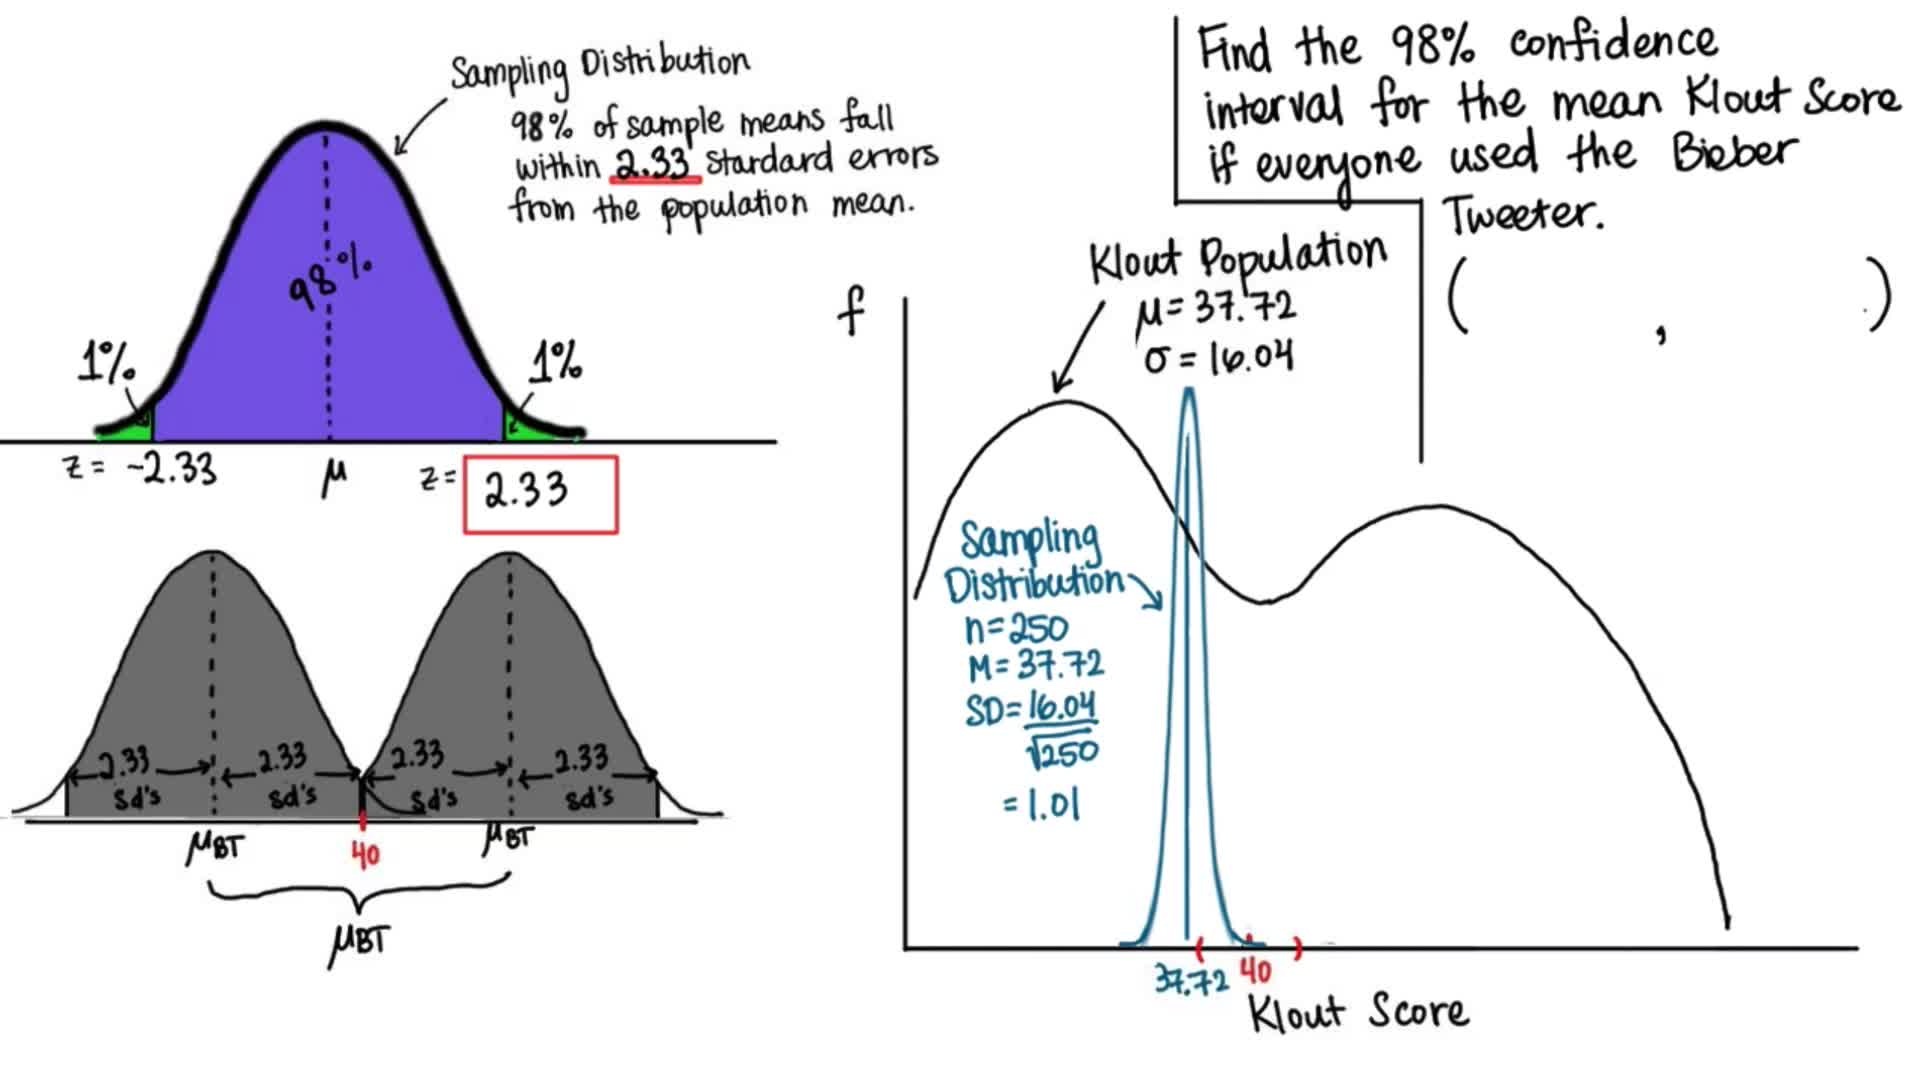 Sampling Distribution
98% of sample means fall
within 2.33 stardard errors
from the population mean.
98%
1%
1%
z = -2.33
μ
z =
2.33
2.33
sd's
2.33
sd's
2.33
sd's
2.33
sd's
μBT
40
μBT
μBT
Find the 98% confidence
interval for the mean Klout Score
if everyone used the Bieber
Tweeter.
( , )
Klout Population
μ = 37.72
σ = 16.04
f
Sampling
Distribution
n = 250
M = 37.72
SD = 16.04
√250
= 1.01
( )
37.72
40
Klout Score